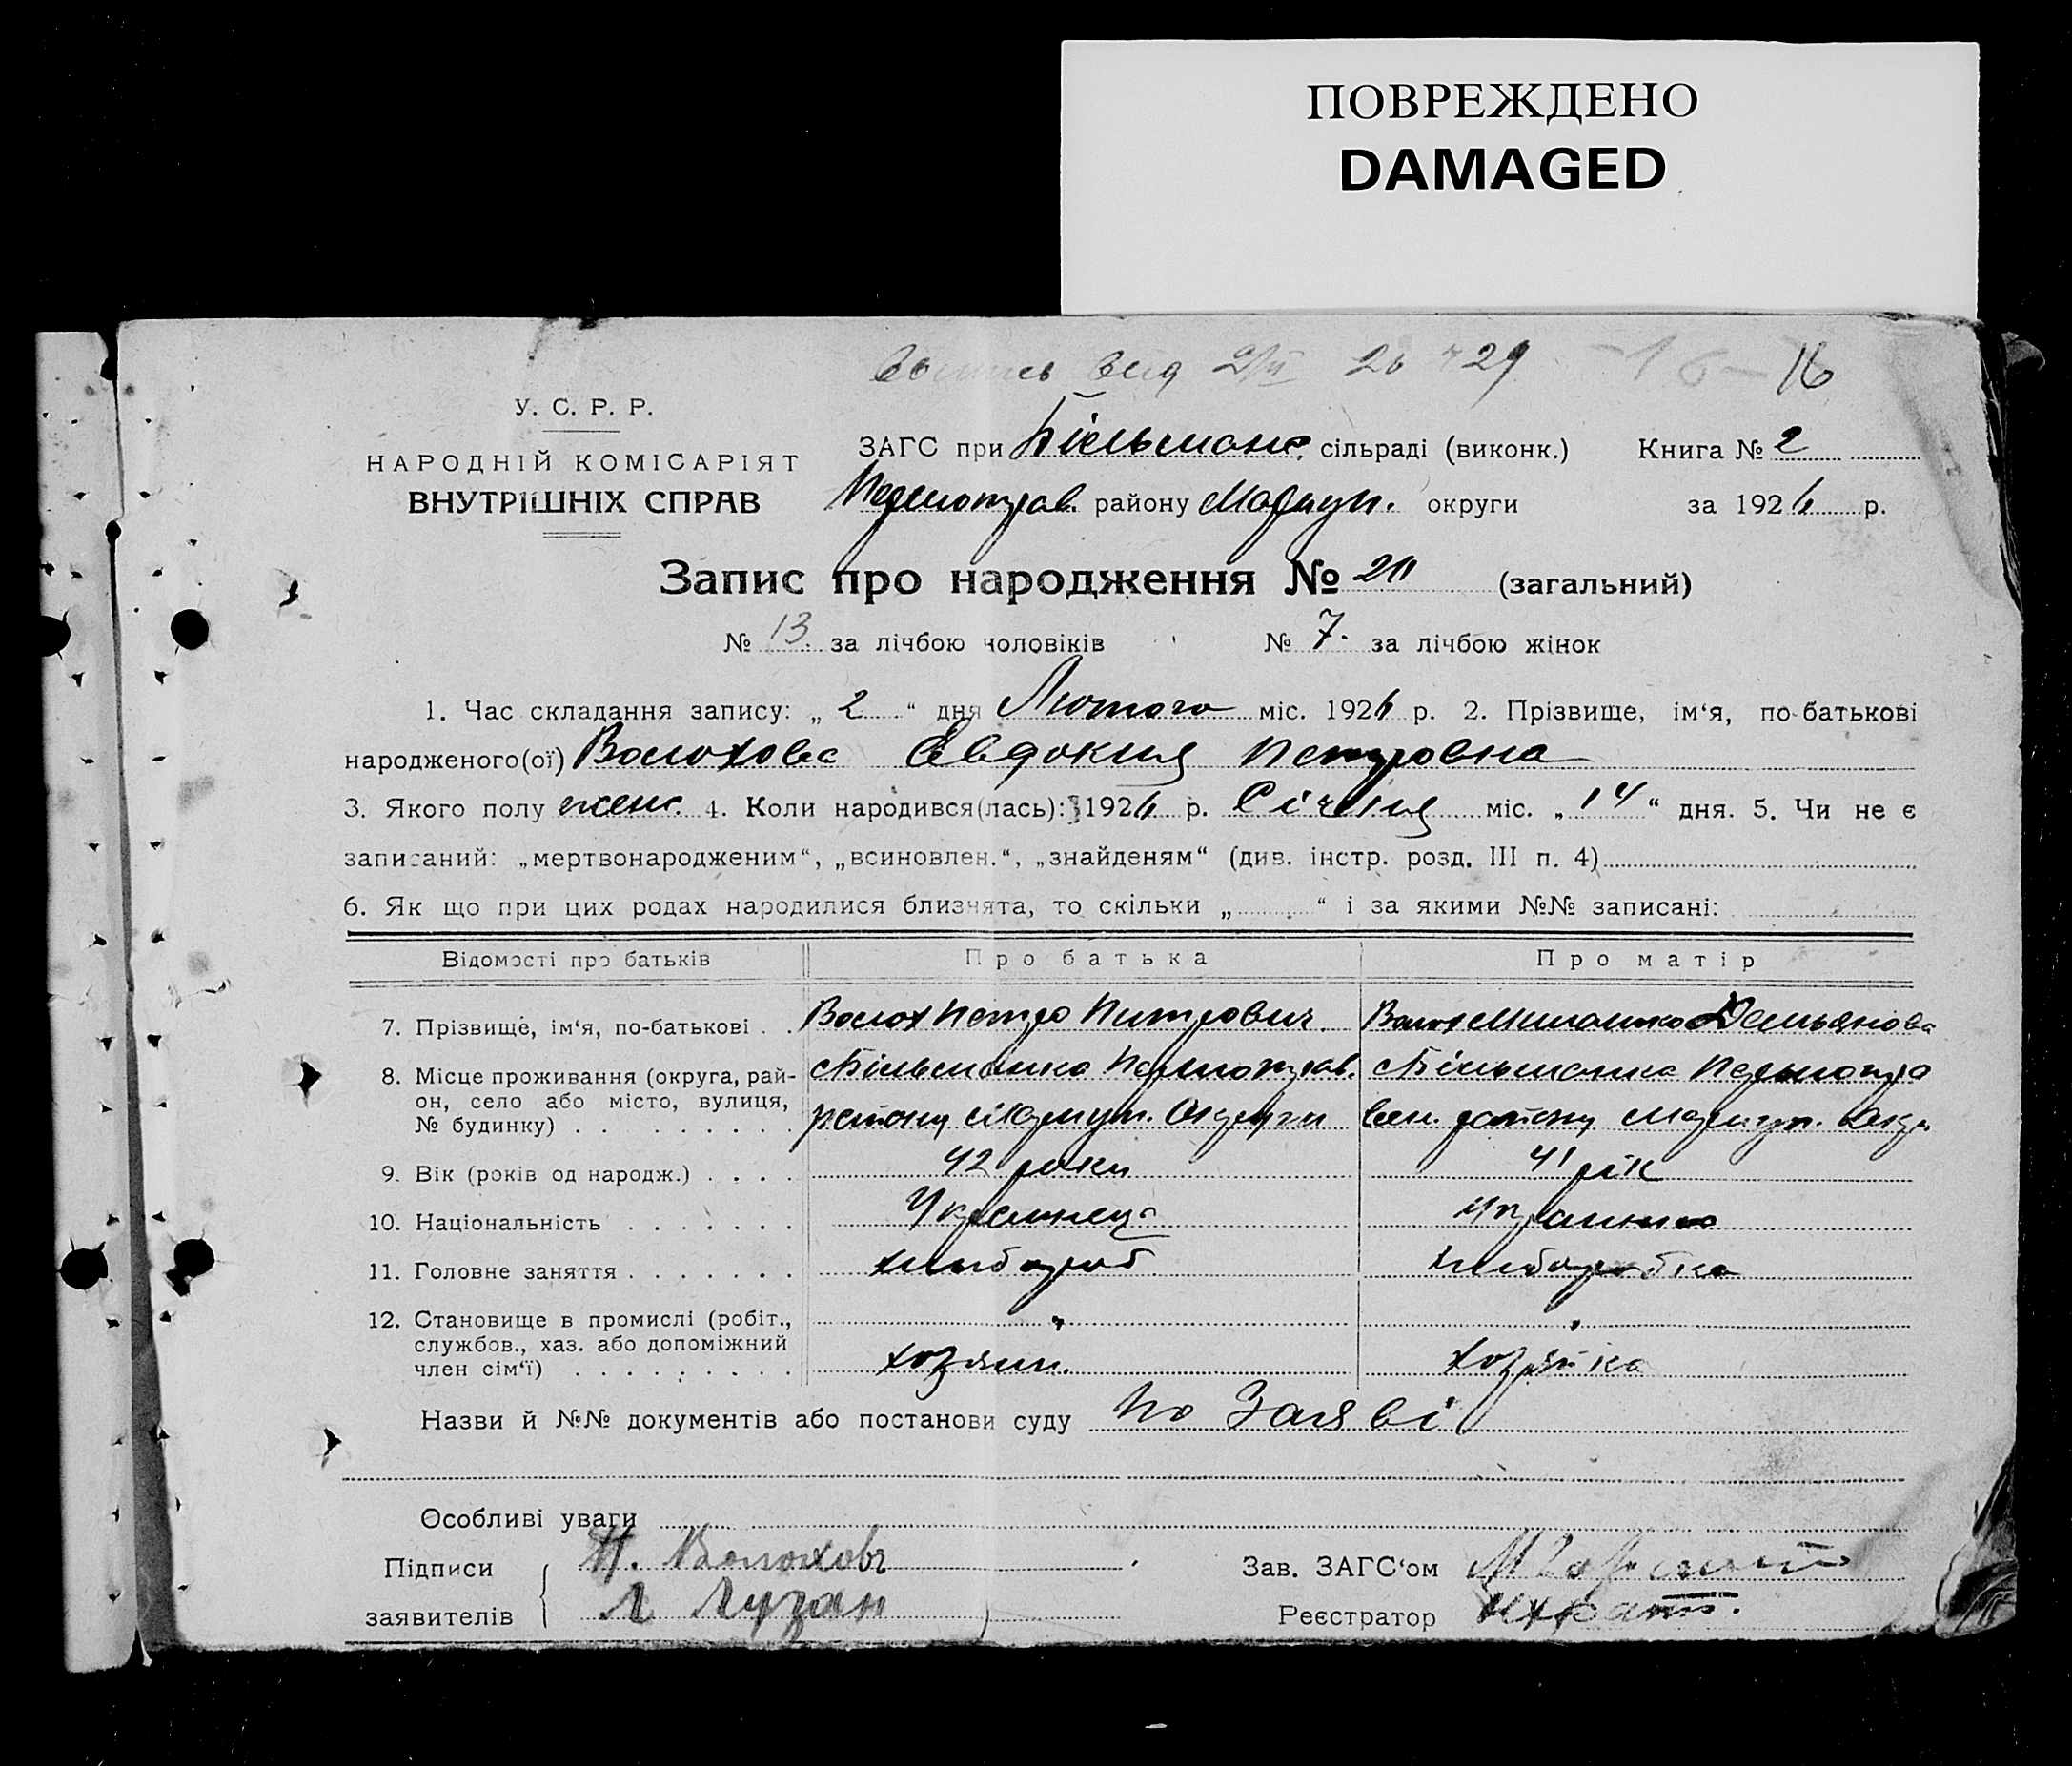 ПОВРЕЖДЕНО
DAMAGED
16
У. С. Р. Р.
НАРОДНІЙ КОМІСАРІЯТ
ВНУТРІШНІХ СПРАВ
ЗАГС при Більманс. сільраді (виконк.) Книга № 2
Першотрав. району Маріуп. округи за 1926 р.
Запис про народження № 20 (загальний)
№ 13. за лічбою чоловіків № 7. за лічбою жінок
1. Час складання запису: „ 2 “ дня Лютого міс. 1926 р. 2. Прізвище, ім‘я, по-батькові
народженого(ої) Волохова Евдокия Петровна
3. Якого полу женс. 4. Коли народився(лась): 1926 р. Січня міс. „ 14 “ дня. 5. Чи не є
записаний: „мертвонародженим“, „всиновлен.“, „знайденям“ (див. інстр. розд. III п. 4)
6. Як що при цих родах народилися близнята, то скільки „ “ і за якими №№ записані:
Відомості про батьків Про батька Про матір
7. Прізвище, ім‘я, по-батькові . . Волох Петро Питрович. Волох Демьянова
8. Місце проживання (округа, рай- с Більманка Першотрав. с Більманка Першотра
он, село або місто, вулиця, району Маріуп. Округи вен. району Маріуп. Окр.
№ будинку) . . . . . . . . .
9. Вік (років од народж.) . . . . 42 роки 41 рік
10. Національність . . . . . . . Украінець Украінка
11. Головне заняття . . . . . . . хлибороб хлиборобка
12. Становище в промислі (робіт., " "
службов., хаз. або допоміжний
член сім‘ї) . . . . . . . . . хозяин. хозяйка
Назви й №№ документів або постанови суду по Заяві
Особливі уваги
Підписи П. Волохов Зав. ЗАГС‘ом
заявителів Л Лузан Реєстратор